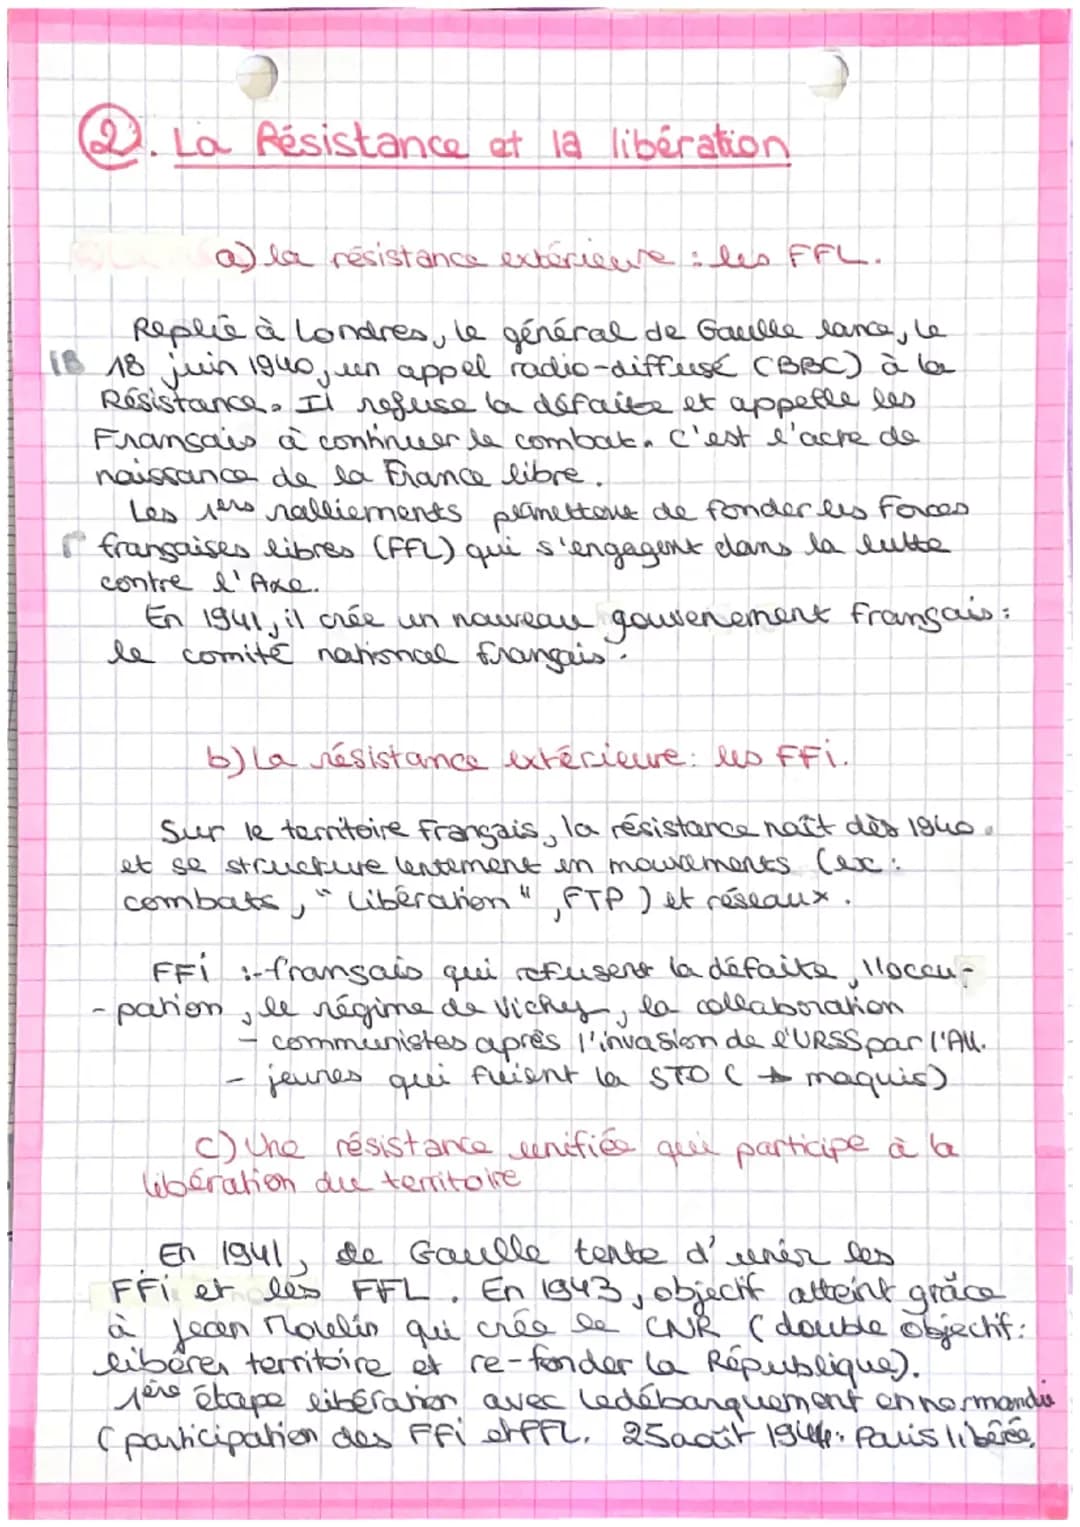 ②. La Résistance et la libération
a) la résistance extérieure : les FFL.
Replié à Londres, le général de Gaulle lance, le
18 18 juin 1940, un appel radio-diffusé (BBC) à la
Résistance. Il refuse la défaite et appelle les
Français à continuer le combat. C'est l'acte de
naissance de la France libre.
Les 1ers ralliements permettent de fonder les Forces
françaises libres (FFL) qui s'engagent dans la lutte
contre l'Axe.
En 1941, il crée un nouveau gouvenement français :
le comité national français.
b) La résistance extérieure : les FFi.
Sur le territoire Français, la résistance naît dès 1940.
et se structure lentement en mouvements (ex :
combats, "Libération", FTP) et réseaux.
FFi :- français qui refusent la défaite, l'occu-
- pation, le régime de Vichy, la collaboration
- communistes après l'invasion de l'URSS par l'All.
- jeunes qui fuient la STO (→ maquis)
c) Une résistance unifiée qui participe à la
libération du territoire
En 1941, de Gaulle tente d'unir les
FFi et les FFL. En 1943, objectif atteint grâce
à Jean Moulin qui crée le CNR (double objectif :
libérer territoire et re-fonder la République).
1ère étape libération avec le débarquement en normandie
(participation des FFi et FFL. 25 août 1944 : Paris libérée.